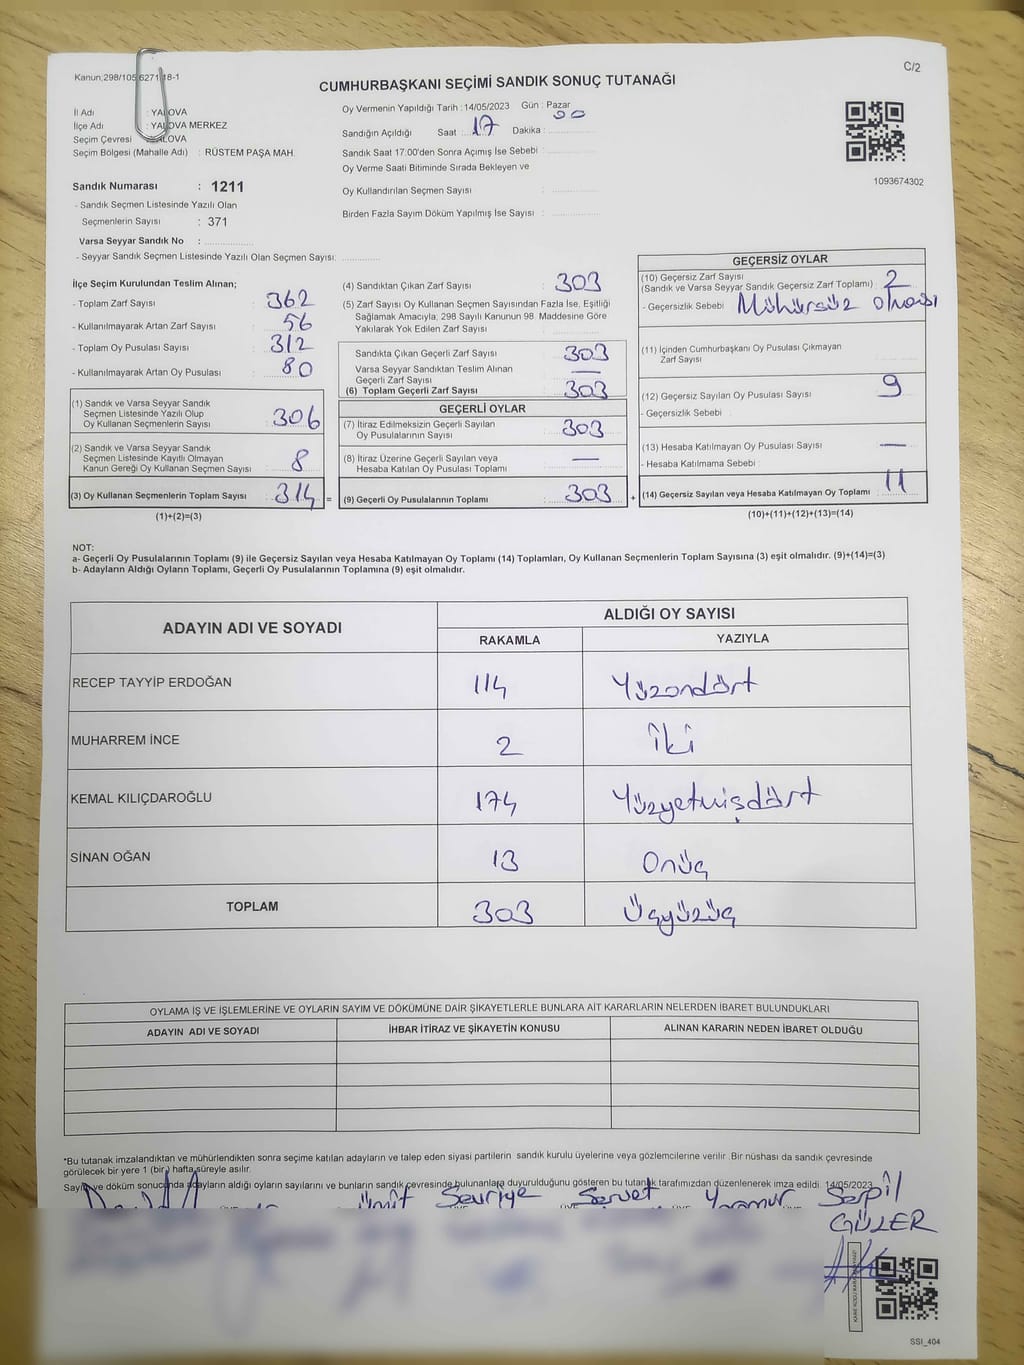 Kanun;298/105,6271/18-1
C/2
CUMHURBAŞKANI SEÇİMİ SANDIK SONUÇ TUTANAĞI
İl Adı : YALOVA
İlçe Adı : YALOVA MERKEZ
Seçim Çevresi : YALOVA
Seçim Bölgesi (Mahalle Adı) : RÜSTEM PAŞA MAH.
Sandık Numarası : 1211
- Sandık Seçmen Listesinde Yazılı Olan
Seçmenlerin Sayısı : 371
Varsa Seyyar Sandık No :
- Seyyar Sandık Seçmen Listesinde Yazılı Olan Seçmen Sayısı:
Oy Vermenin Yapıldığı Tarih : 14/05/2023 Gün : Pazar
Sandığın Açıldığı Saat : 17 Dakika : 00
Sandık Saat 17:00'den Sonra Açımış İse Sebebi :
Oy Verme Saati Bitiminde Sırada Bekleyen ve
Oy Kullandırılan Seçmen Sayısı :
Birden Fazla Sayım Döküm Yapılmış İse Sayısı :
1093674302
İlçe Seçim Kurulundan Teslim Alınan;
- Toplam Zarf Sayısı : 362
- Kullanılmayarak Artan Zarf Sayısı : 56
- Toplam Oy Pusulası Sayısı : 312
- Kullanılmayarak Artan Oy Pusulası : 80
(1) Sandık ve Varsa Seyyar Sandık
Seçmen Listesinde Yazılı Olup
Oy Kullanan Seçmenlerin Sayısı : 306
(2) Sandık ve Varsa Seyyar Sandık
Seçmen Listesinde Kayıtlı Olmayan
Kanun Gereği Oy Kullanan Seçmen Sayısı : 8
(3) Oy Kullanan Seçmenlerin Toplam Sayısı : 314 =
(1)+(2)=(3)
(4) Sandıktan Çıkan Zarf Sayısı : 303
(5) Zarf Sayısı Oy Kullanan Seçmen Sayısından Fazla İse, Eşitliği
Sağlamak Amacıyla; 298 Sayılı Kanunun 98. Maddesine Göre
Yakılarak Yok Edilen Zarf Sayısı :
Sandıkta Çıkan Geçerli Zarf Sayısı : 303
Varsa Seyyar Sandıktan Teslim Alınan
Geçerli Zarf Sayısı : —
(6) Toplam Geçerli Zarf Sayısı : 303
GEÇERLİ OYLAR
(7) İtiraz Edilmeksizin Geçerli Sayılan
Oy Pusulalarının Sayısı : 303
(8) İtiraz Üzerine Geçerli Sayılan veya
Hesaba Katılan Oy Pusulası Toplamı : —
(9) Geçerli Oy Pusulalarının Toplamı : 303 +
GEÇERSİZ OYLAR
(10) Geçersiz Zarf Sayısı
(Sandık ve Varsa Seyyar Sandık Geçersiz Zarf Toplamı) : 2
- Geçersizlik Sebebi : Mühürsüz olması
(11) İçinden Cumhurbaşkanı Oy Pusulası Çıkmayan
Zarf Sayısı :
(12) Geçersiz Sayılan Oy Pusulası Sayısı : 9
- Geçersizlik Sebebi :
(13) Hesaba Katılmayan Oy Pusulası Sayısı : —
- Hesaba Katılmama Sebebi :
(14) Geçersiz Sayılan veya Hesaba Katılmayan Oy Toplamı : 11
(10)+(11)+(12)+(13)=(14)
NOT:
a- Geçerli Oy Pusulalarının Toplamı (9) ile Geçersiz Sayılan veya Hesaba Katılmayan Oy Toplamı (14) Toplamları, Oy Kullanan Seçmenlerin Toplam Sayısına (3) eşit olmalıdır. (9)+(14)=(3)
b- Adayların Aldığı Oyların Toplamı, Geçerli Oy Pusulalarının Toplamına (9) eşit olmalıdır.
ADAYIN ADI VE SOYADI
ALDIĞI OY SAYISI
RAKAMLA YAZIYLA
RECEP TAYYİP ERDOĞAN 114 Yüzondört
MUHARREM İNCE 2 İki
KEMAL KILIÇDAROĞLU 174 Yüzyetmişdört
SİNAN OĞAN 13 Onüç
TOPLAM 303 Üçyüzüç
OYLAMA İŞ VE İŞLEMLERİNE VE OYLARIN SAYIM VE DÖKÜMÜNE DAİR ŞİKAYETLERLE BUNLARA AİT KARARLARIN NELERDEN İBARET BULUNDUKLARI
ADAYIN ADI VE SOYADI İHBAR İTİRAZ VE ŞİKAYETİN KONUSU ALINAN KARARIN NEDEN İBARET OLDUĞU
*Bu tutanak imzalandıktan ve mühürlendikten sonra seçime katılan adayların ve talep eden siyasi partilerin sandık kurulu üyelerine veya gözlemcilerine verilir. Bir nüshası da sandık çevresinde
görülecek bir yere 1 (bir) hafta süreyle asılır.
Sayım ve döküm sonucunda adayların aldığı oyların sayılarını ve bunların sandık çevresinde bulunanlara duyurulduğunu gösteren bu tutanak tarafımızdan düzenlenerek imza edildi. 14/05/2023
Ümit Sevriye Servet Yağmur Serpil
GÜLER
SSI_404